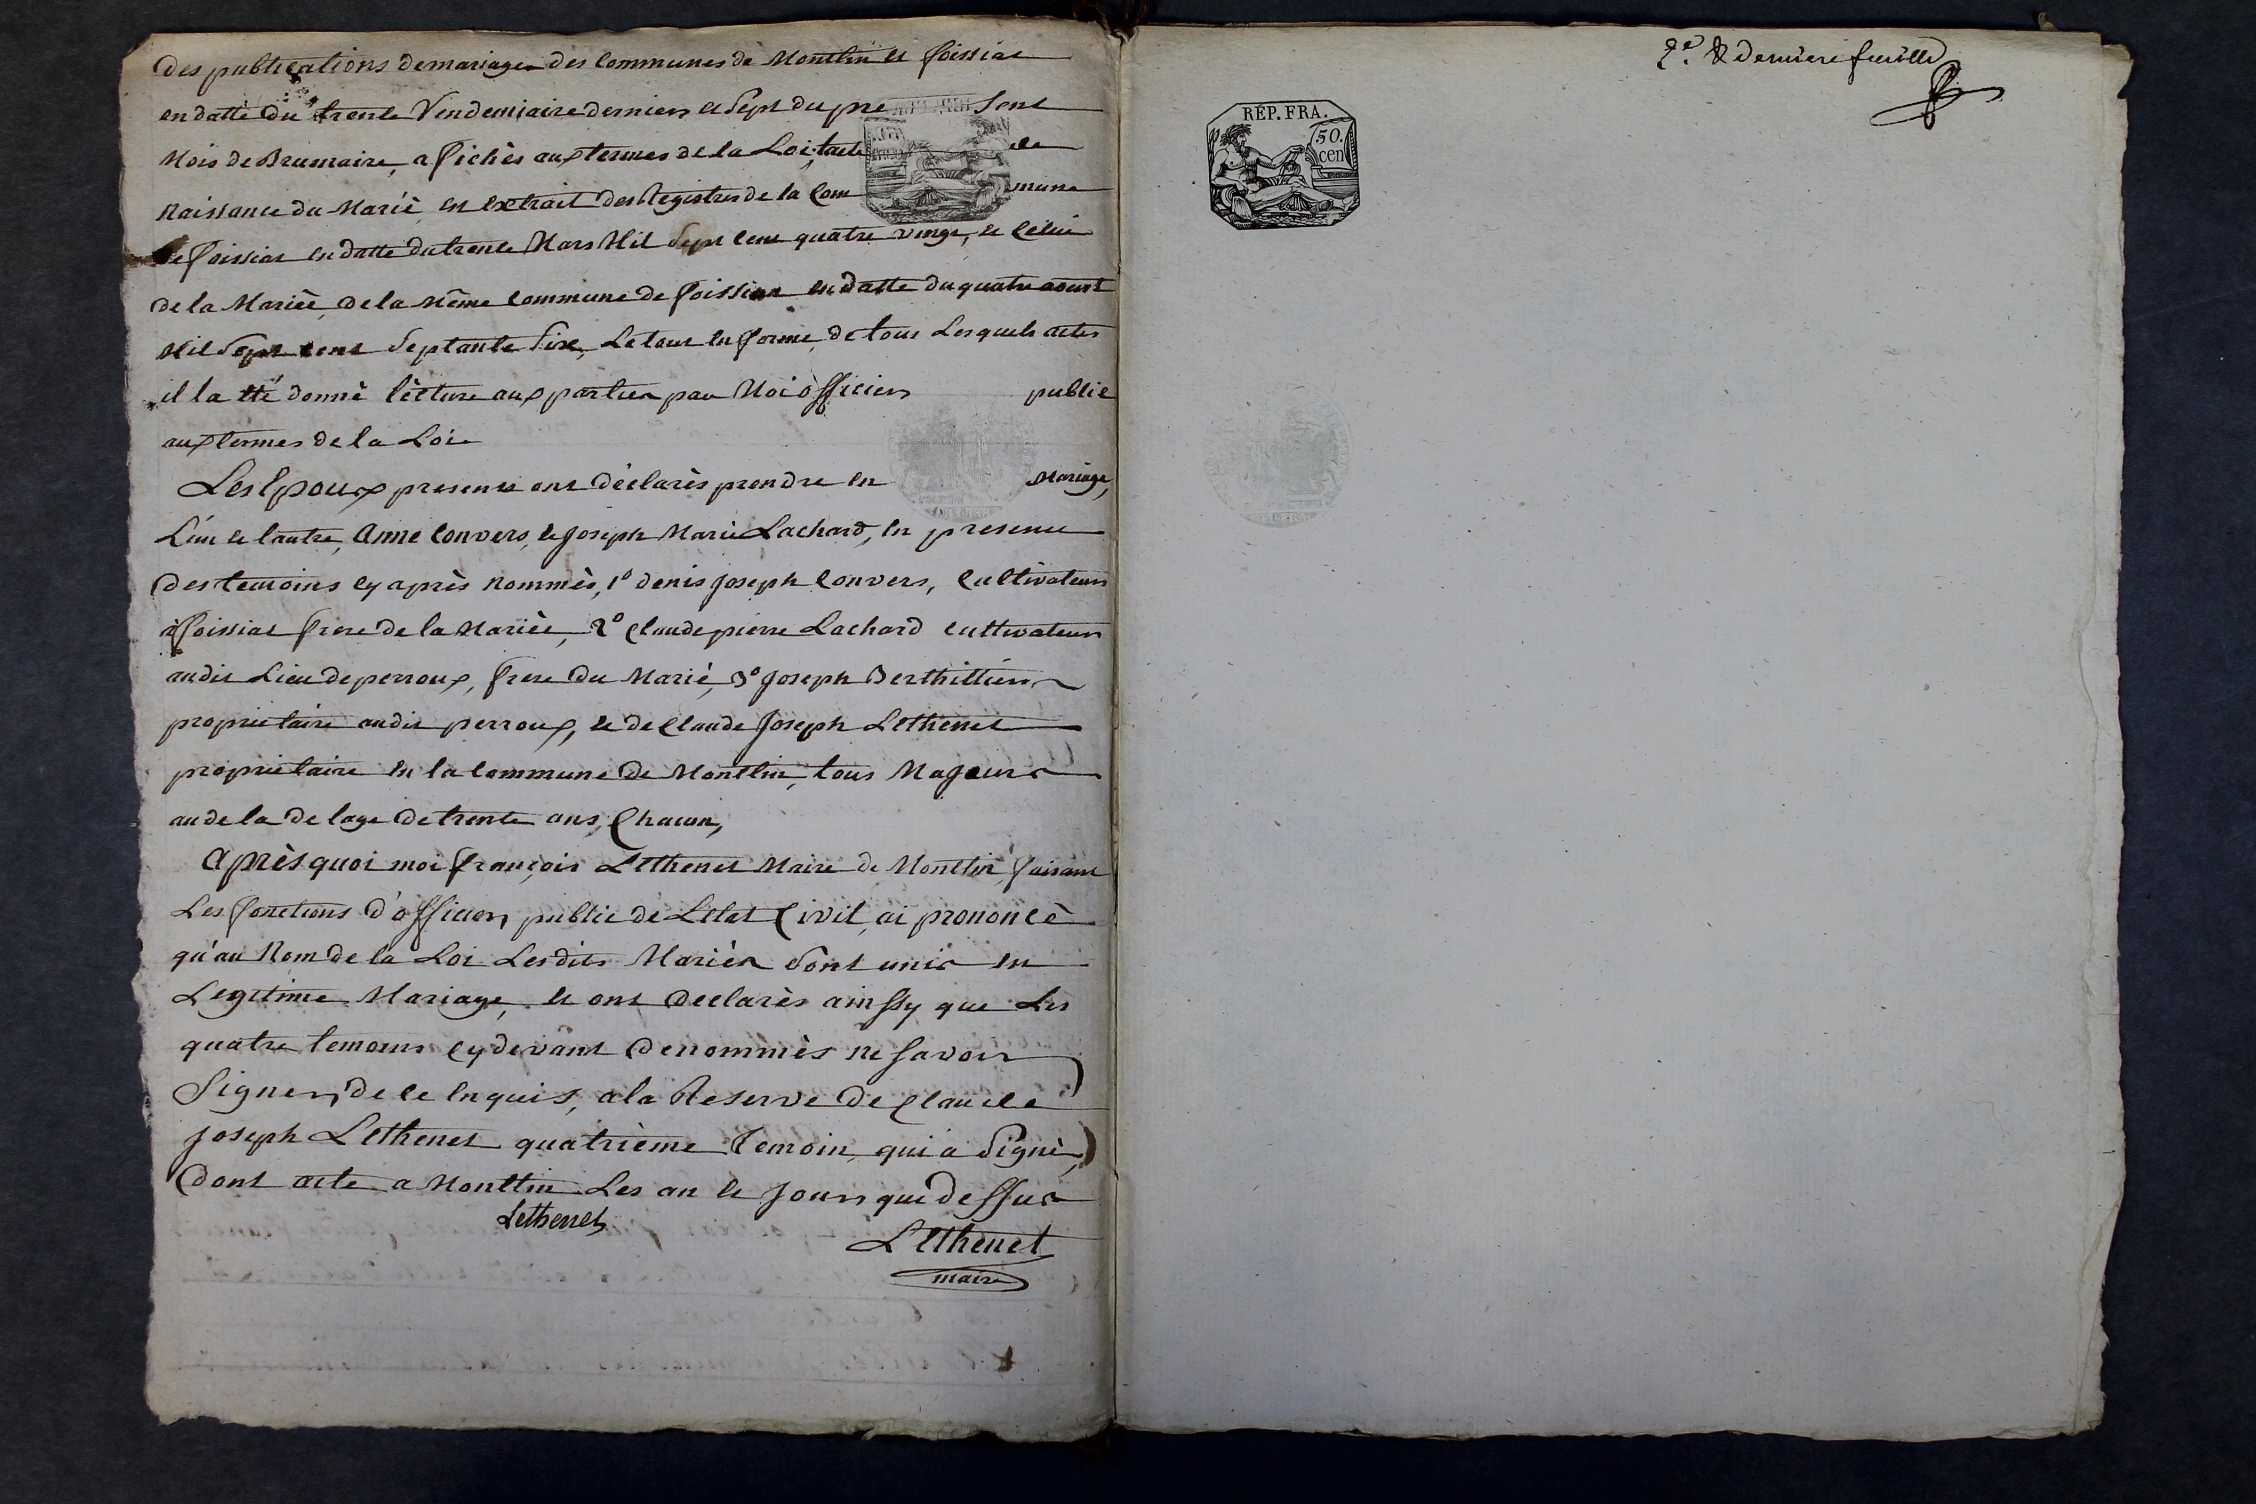 des publications de mariages des communes de Montlin et foissiat
en datte du trente Vendemiaire dernier et Sept du pre sent
Mois de Brumaire, affichès aux termes de la Loi, l'acte de
naissance du Mariè en extrait des Registres de la Com mune
de foissiat en datte du trente Mars Mil Sept cent quatre vingt, et Celui
de la Mariée, de la même commune de foissiat en datte du quatre aoust
Mil Sept cent Septante Six, Le tout en forme, de tous Lesquels actes
il la étè donnè lècture aux parties par Moi officier public
aux termes de la Loi
Les Epoux presents ont dèclarès prendre en Mariage,
L'un et lautre, Anne Convers, et Joseph Marie Lachard, en presence
des temoins cy après nommès, 1º denis joseph Convers, Cultivateur
à foissiat frere de la Mariée, 2º Claude pierre Lachard cultivateur
audit Lieu de perroux, frere du Mariè, 3º Joseph Berthillier
proprietaire audit perroux, et de Claude Joseph Lethenet
proprietaire en la commune de Montlin, tous Majeurs
au dela de lage de trente ans, Chacun,
Après quoi moi françois Lethenet Maire de Montlin, faisant
Les fonctions d'officier public de Letat Civil, ai prononcè
qu'au Nom de la Loi Lesdits Mariès Sont unis en
Legitime Mariage, et ont declarès ainssy que Les
quatre temoins cy devant denommès ne savoir
Signer, de ce enquis, a la Reserve de Claude
Joseph Lethenet quatrième temoin, qui a Signè,
dont acte a Montlin Les an et Jour que dessus
Lethenet
Lethenet
maire
2.e & derniere feuille
RÉP. FRA.
50.
cen